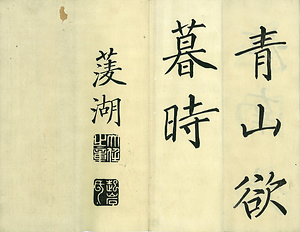 青山欲
暮時
菱湖